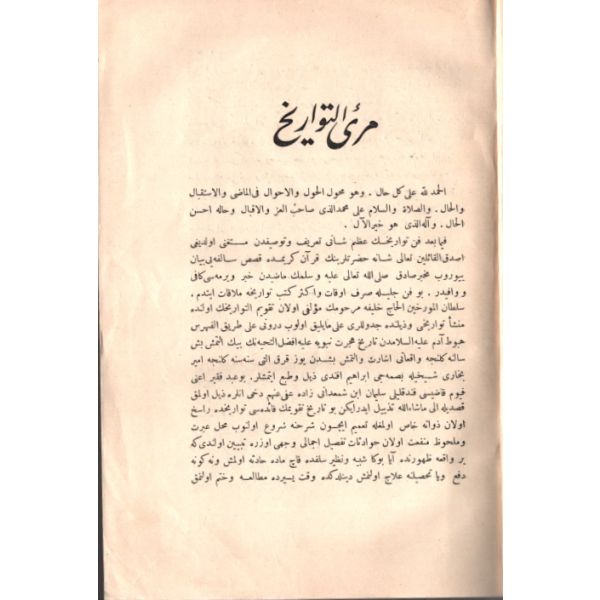 مرئ التواريخ
الحمد لله على كل حال . وهو محول الحول والاحوال فى الماضى والاستقبال
والحال . والصلاة والسلام على محمد الذى صاحب العز والاقبال وحاله احسن
الحال . وآله الذى هو خير الآل .
فيما بعد فن تواريخك عظم شانى تعريف وتوصيفدن مستغنى اولديغنى
اصدق القائلين تعالى شانه حضرتلرينك قرآن كريمنده قصص سالفه يى بيان
بيوروب مخبر صادق صلى الله تعالى عليه و سلمك ماضيدن خبر ويرمه سى كافى
و وافيدر . بو فن جليله صرف اوقات واكثر كتب تواريخه ملاقات ايتدم .
سلطان المورخين الحاج خليفه مرحومك مؤلفى اولان تقويم التواريخك اولنده
منشأ تواريخى وذيلنده جدوللرى على مايليق اولوب درونى على طريق الفهرس
هبوط آدم عليه السلامدن تاريخ هجرت نبويه عليه افضل التحيه نك بيك التمش بش
سالنه كلنجه واقعاتى اشارت والتمش بشدن يوز قرق التى سنه سنه كلنجه امير
بخارى شيخيله بصمه جى ابراهيم افندى ذيل وطبع ايتمشلر . بو عبد فقير اعنى
فيوم قاضيسى فندقليلى سليمان ابن شمعدانى زاده عفى عنهم دخى انلره ذيل اولمق
قصديله الى ماشاءالله تذييل ايدرايكن بو تاريخ تقويمك فائده سى تواريخده راسخ
اولان ذواته خاص اولمغله تعميم ايچون شرحنه شروع اولنوب محل عبرت
وملحوظ منفعت اولان حوادثات تفصيل اجمالى وجهى اوزره تبيين اولندى كه
بر واقعه ظهورنده آيا بوكا شبيه و نظير سلفده قاچ ماده حادثه اولمش ونه كونه
دفع ويا تحصيلنه علاج اولنمش دينلدكده وقت يسيرده مطالعه سه وختم اولنمق